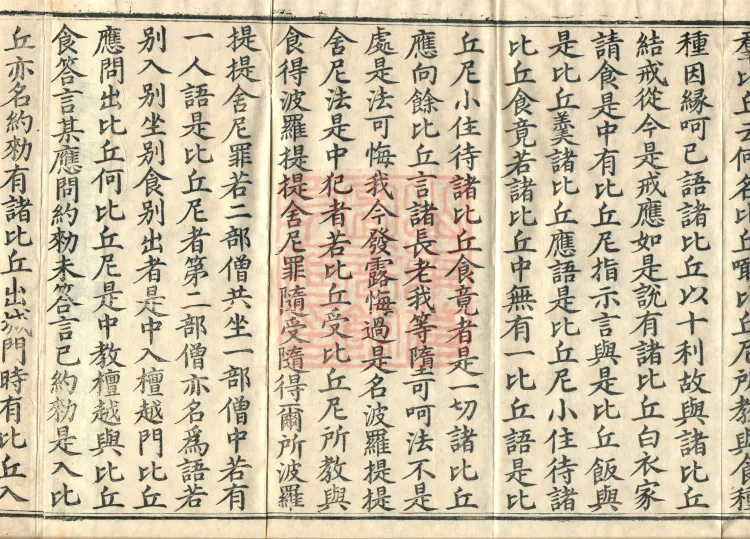 種因緣呵已語諸比丘以十利故與諸比丘
結戒從今是戒應如是說有諸比丘白衣家
請食是中有比丘尼指示言與是比丘飯與
是比丘羹諸比丘應語是比丘尼小住待諸
比丘食竟若諸比丘中無有一比丘語是比
丘尼小住待諸比丘食竟者是一切諸比丘
應向餘比丘言諸長老我等墮可呵法不是
處是法可悔我今發露悔過是名波羅提提
舍尼法是中犯者若比丘受比丘尼所教與
食得波羅提提舍尼罪隨受隨得爾所波羅
提提舍尼罪若二部僧共坐一部僧中若有
一人語是比丘尼者第二部僧亦名為語若
別入別坐別食別出者是中入檀越門比丘
應問出比丘何比丘尼是中教檀越與比丘
食答言某應問約勑未答言已約勑是入比
丘亦名約勑有諸比丘出城門時有比丘入